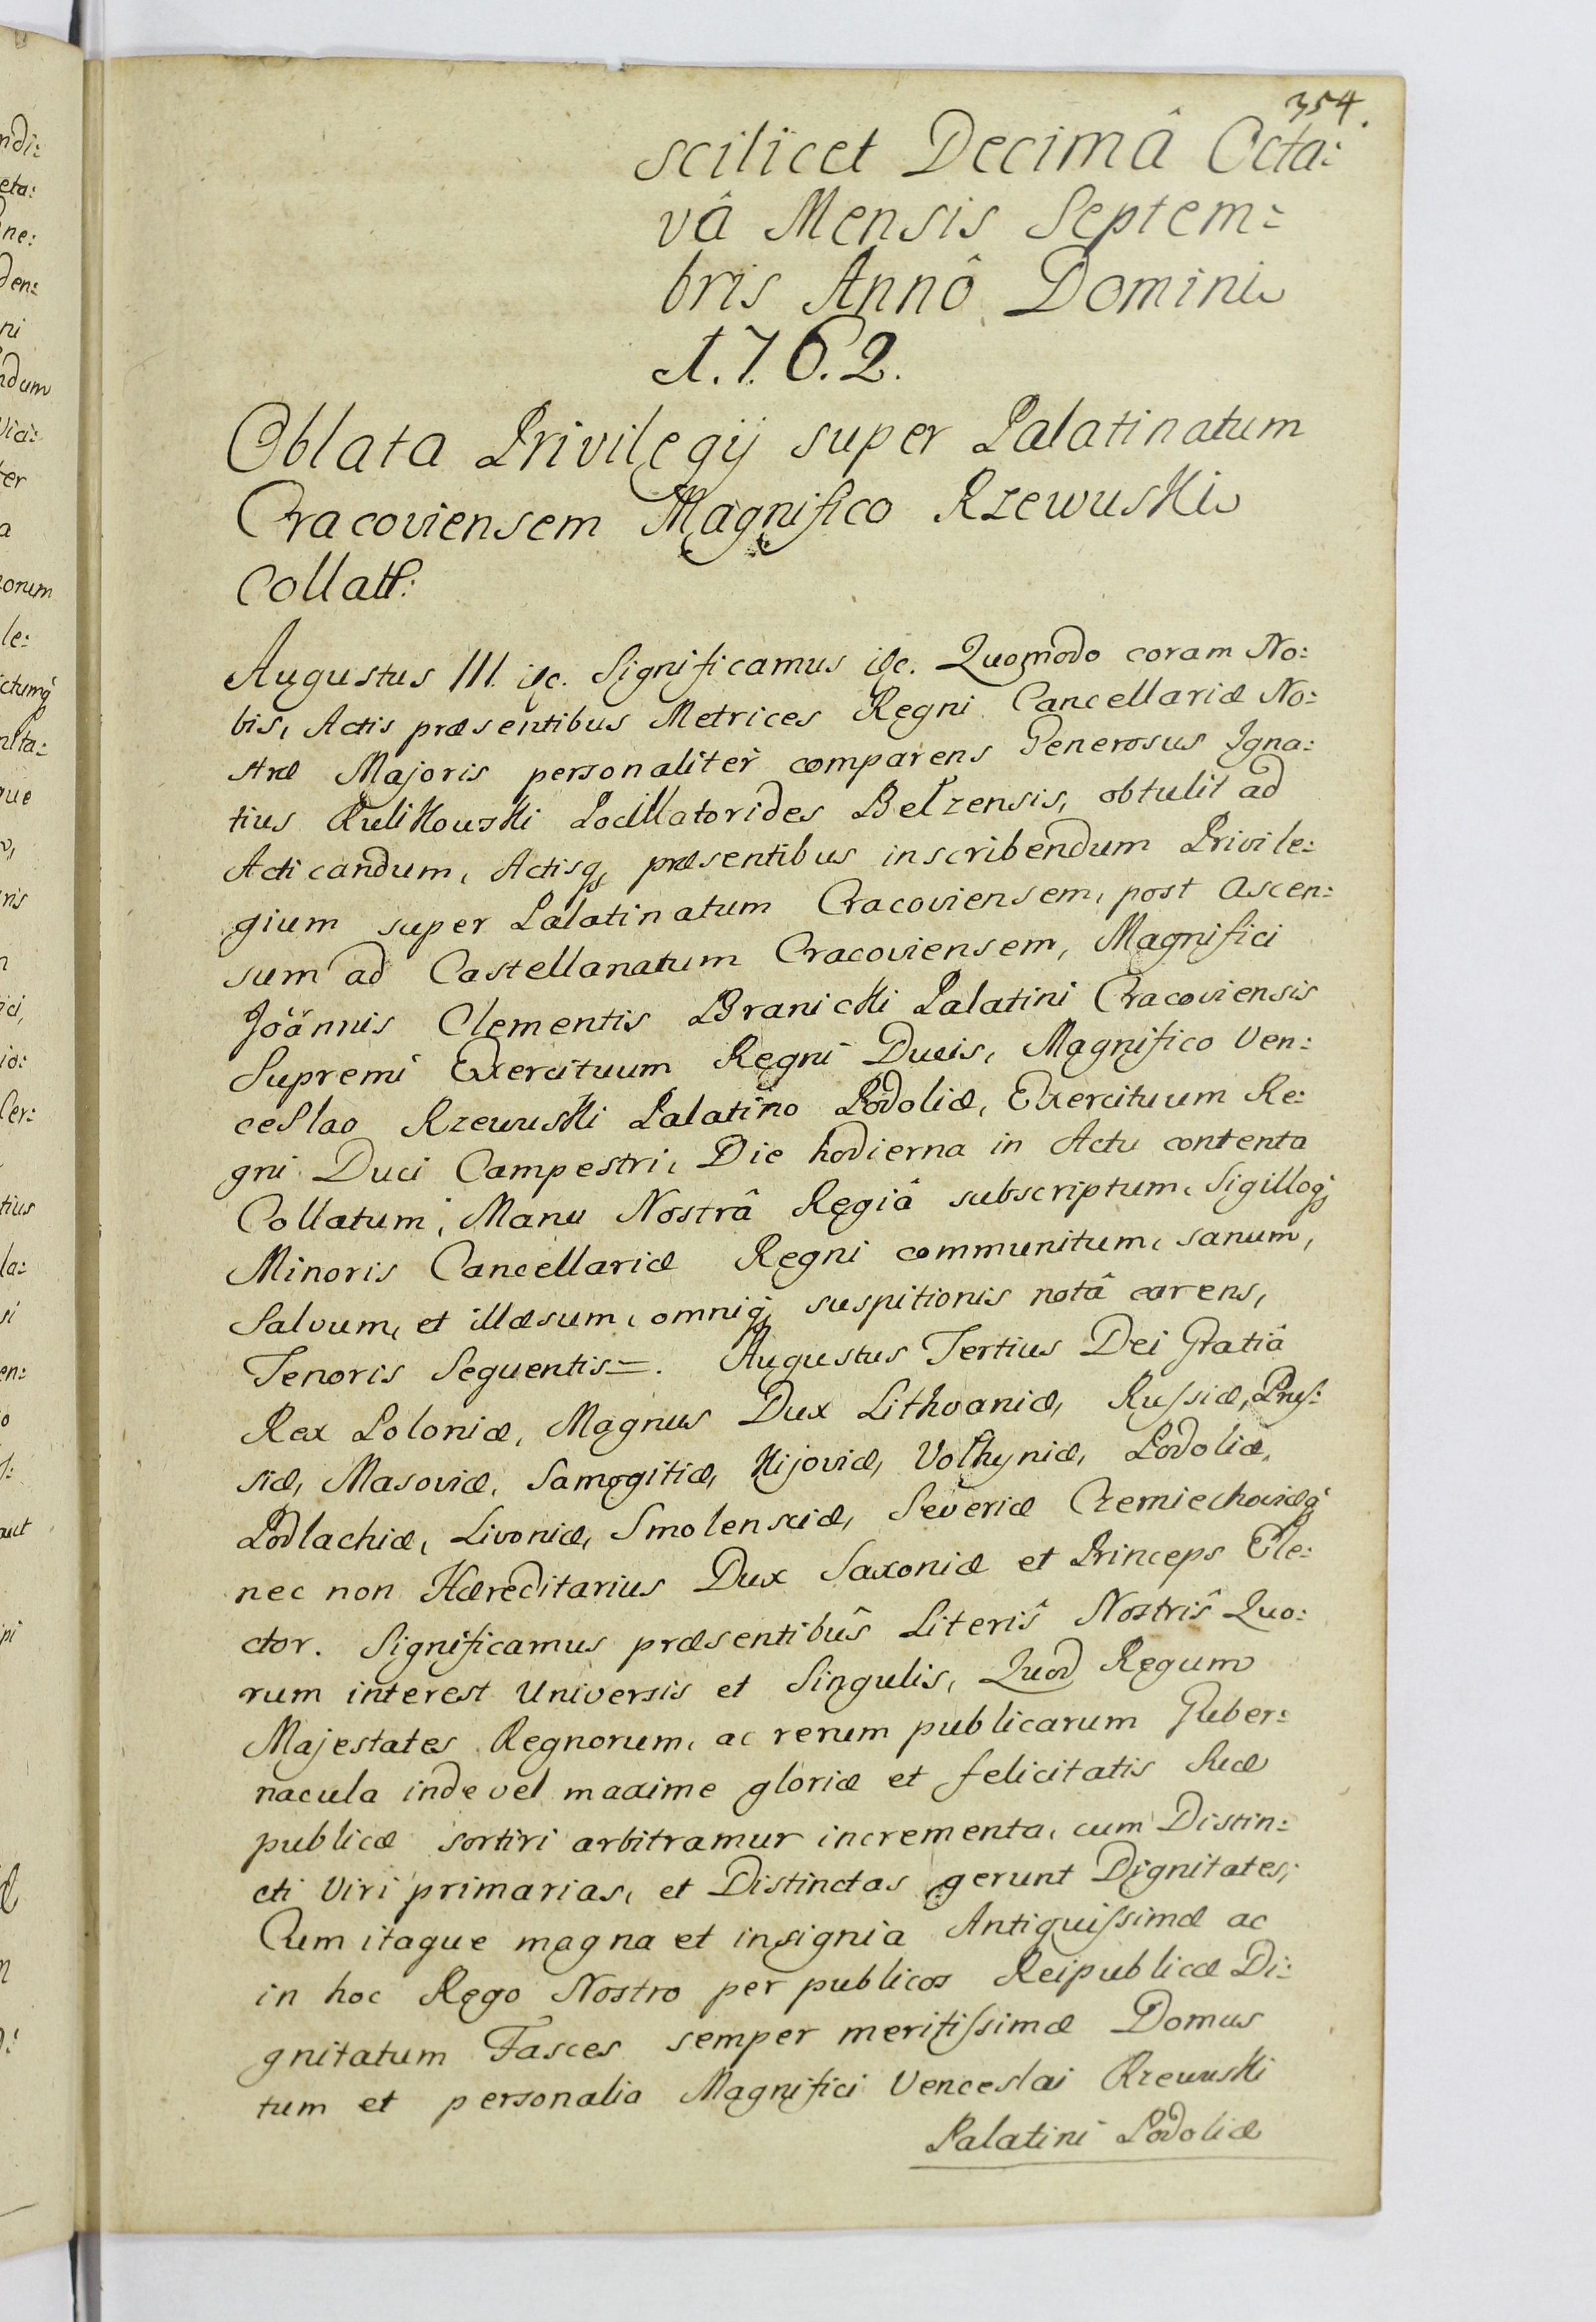 354.
scilicet Decimâ Octa:
vâ Mensis Septem:
bris Annô Domini
1.7.6.2.
Oblata Privilegij super Palatinatum
Cracoviensem Magnifico Rzewuski
Collati:
Augustus III. &c. Significamus &c. Quomodo coram No:
bis, Actis præsentibus Metrices Regni Cancellariæ No:
stræ Majoris personaliter comparens Generosus Igna:
tius Kulikowski Pocillatorides Belzensis, obtulit ad
Acticandum, Actisq; præsentibus inscribendum Privile:
gium super Palatinatum Cracoviensem, post Ascen:
sum ad Castellanatum Cracoviensem, Magnifici
Joannis Clementis Branicki Palatini Cracoviensis
Supremi Exercituum Regni Ducis, Magnifico Ven:
ceslao Rzewuski Palatino Podoliæ, Exercituum Re:
gni Duci Campestri, Die hodierna in Actu contenta
Collatum, Manu Nostrâ Regiâ subscriptum, Sigilloq;
Minoris Cancellariæ Regni communitum, sanum,
Salvum, et illæsum, omniq; suspitionis notâ carens,
Tenoris Sequentis =. Augustus Tertius Dei Gratiâ
Rex Poloniæ, Magnus Dux Lithvaniæ, Russiæ, Prus:
siæ, Masoviæ, Samogitiæ, Kijoviæ, Volhyniæ, Podoliæ,
Podlachiæ, Livoniæ, Smolensciæ, Severiæ Czerniechoviæq;
nec non Hæreditarius Dux Saxoniæ et Princeps Ele:
ctor. Significamus præsentibûs Literîs Nostrîs Quo:
rum interest Universis et Singulis, Quod Regum
Majestates Regnorum, ac rerum publicarum Guber:
nacula inde vel maxime gloriæ et felicitatis Suæ
publicæ sortiri arbitramur incrementa, cum Distin:
cti Viri primarias, et Distinctas gerunt Dignitates;
Cum itaque magna et insignia Antiquissimæ ac
in hoc Rego Nostro per publicos Reipublicæ Di:
gnitatum Fasces semper meritissimæ Domus
tum et personalia Magnifici Venceslai Rzewuski
Palatini Podoliæ